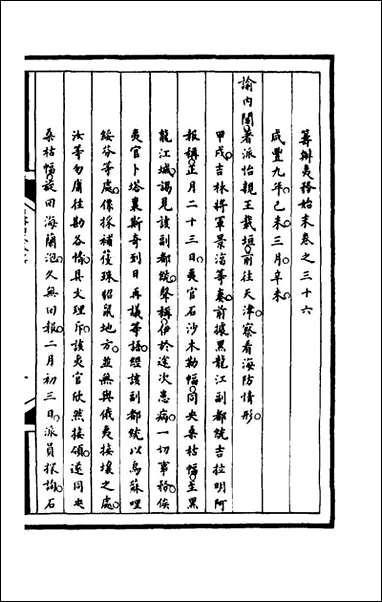 籌辦夷務始末卷之三十六
咸豐九年己未三月辛未
諭內閣著派怡親王載垣前往天津察看海防情形
甲戌吉林將軍景淳等奏前據黑龍江副都統吉拉明阿
報稱正月二十三日夷官石沙木勒幅同夬桑枯幅至黑
龍江城謁見該副都統聲稱伊於途次患病一切事務俟
夷官卜塔裏斯奇到日再議等語經該副都統以烏蘇哩
綏芬等處係採捕葠珠貂鼠地方並無與俄夷接壤之處
汝等勿庸往勘各情具文理斥該夷官欣然接領遂同夬
桑枯幅旋回海蘭泡久無回報二月初三日派員探詢石